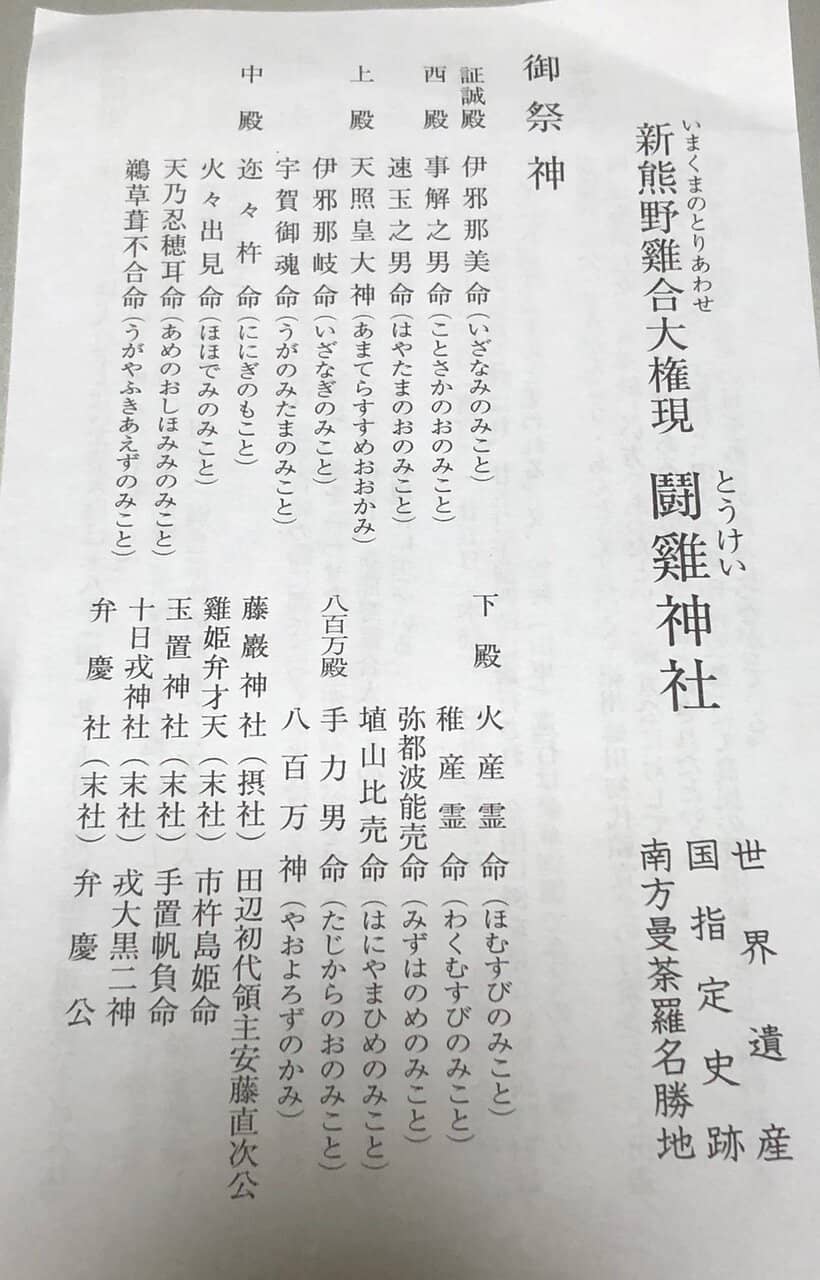 いまくまのとりあわせ
新熊野雞合大権現
とうけい
闘雞神社
世界遺産
国指定史跡
南方曼荼羅名勝地
御祭神
証誠殿 伊邪那美命(いざなみのみこと)
西殿 事解之男命(ことさかのおのみこと)
速玉之男命(はやたまのおのみこと)
上殿 天照皇大神(あまてらすすめおおかみ)
伊邪那岐命(いざなぎのみこと)
宇賀御魂命(うがのみたまのみこと)
中殿 迩々杵命(ににぎのもこと)
火々出見命(ほほでみのみこと)
天乃忍穂耳命(あめのおしほみみのみこと)
鵜草葺不合命(うがやふきあえずのみこと)
下殿 火産霊命(ほむすびのみこと)
稚産霊命(わくむすびのみこと)
弥都波能売命(みずはのめのみこと)
埴山比売命(はにやまひめのみこと)
八百万殿 手力男命(たじからのおのみこと)
八百万神(やおよろずのかみ)
藤巖神社(摂社) 田辺初代領主安藤直次公
雞姫弁才天(末社) 市杵島姫命
玉置神社(末社) 手置帆負命
十日戎神社(末社) 戎大黒二神
弁慶社(末社) 弁慶公